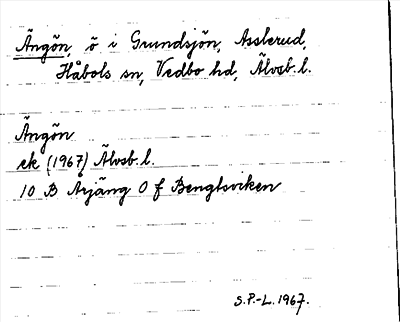 Ängön, ö i Grundsjön, Asslerud,
Håbols sn, Vedbo hd, Älvsb. l.
Ängön
ek (1967) Älvsb. l.
10 B Årjäng O f Bengtsviken
S.P.-L. 1967.